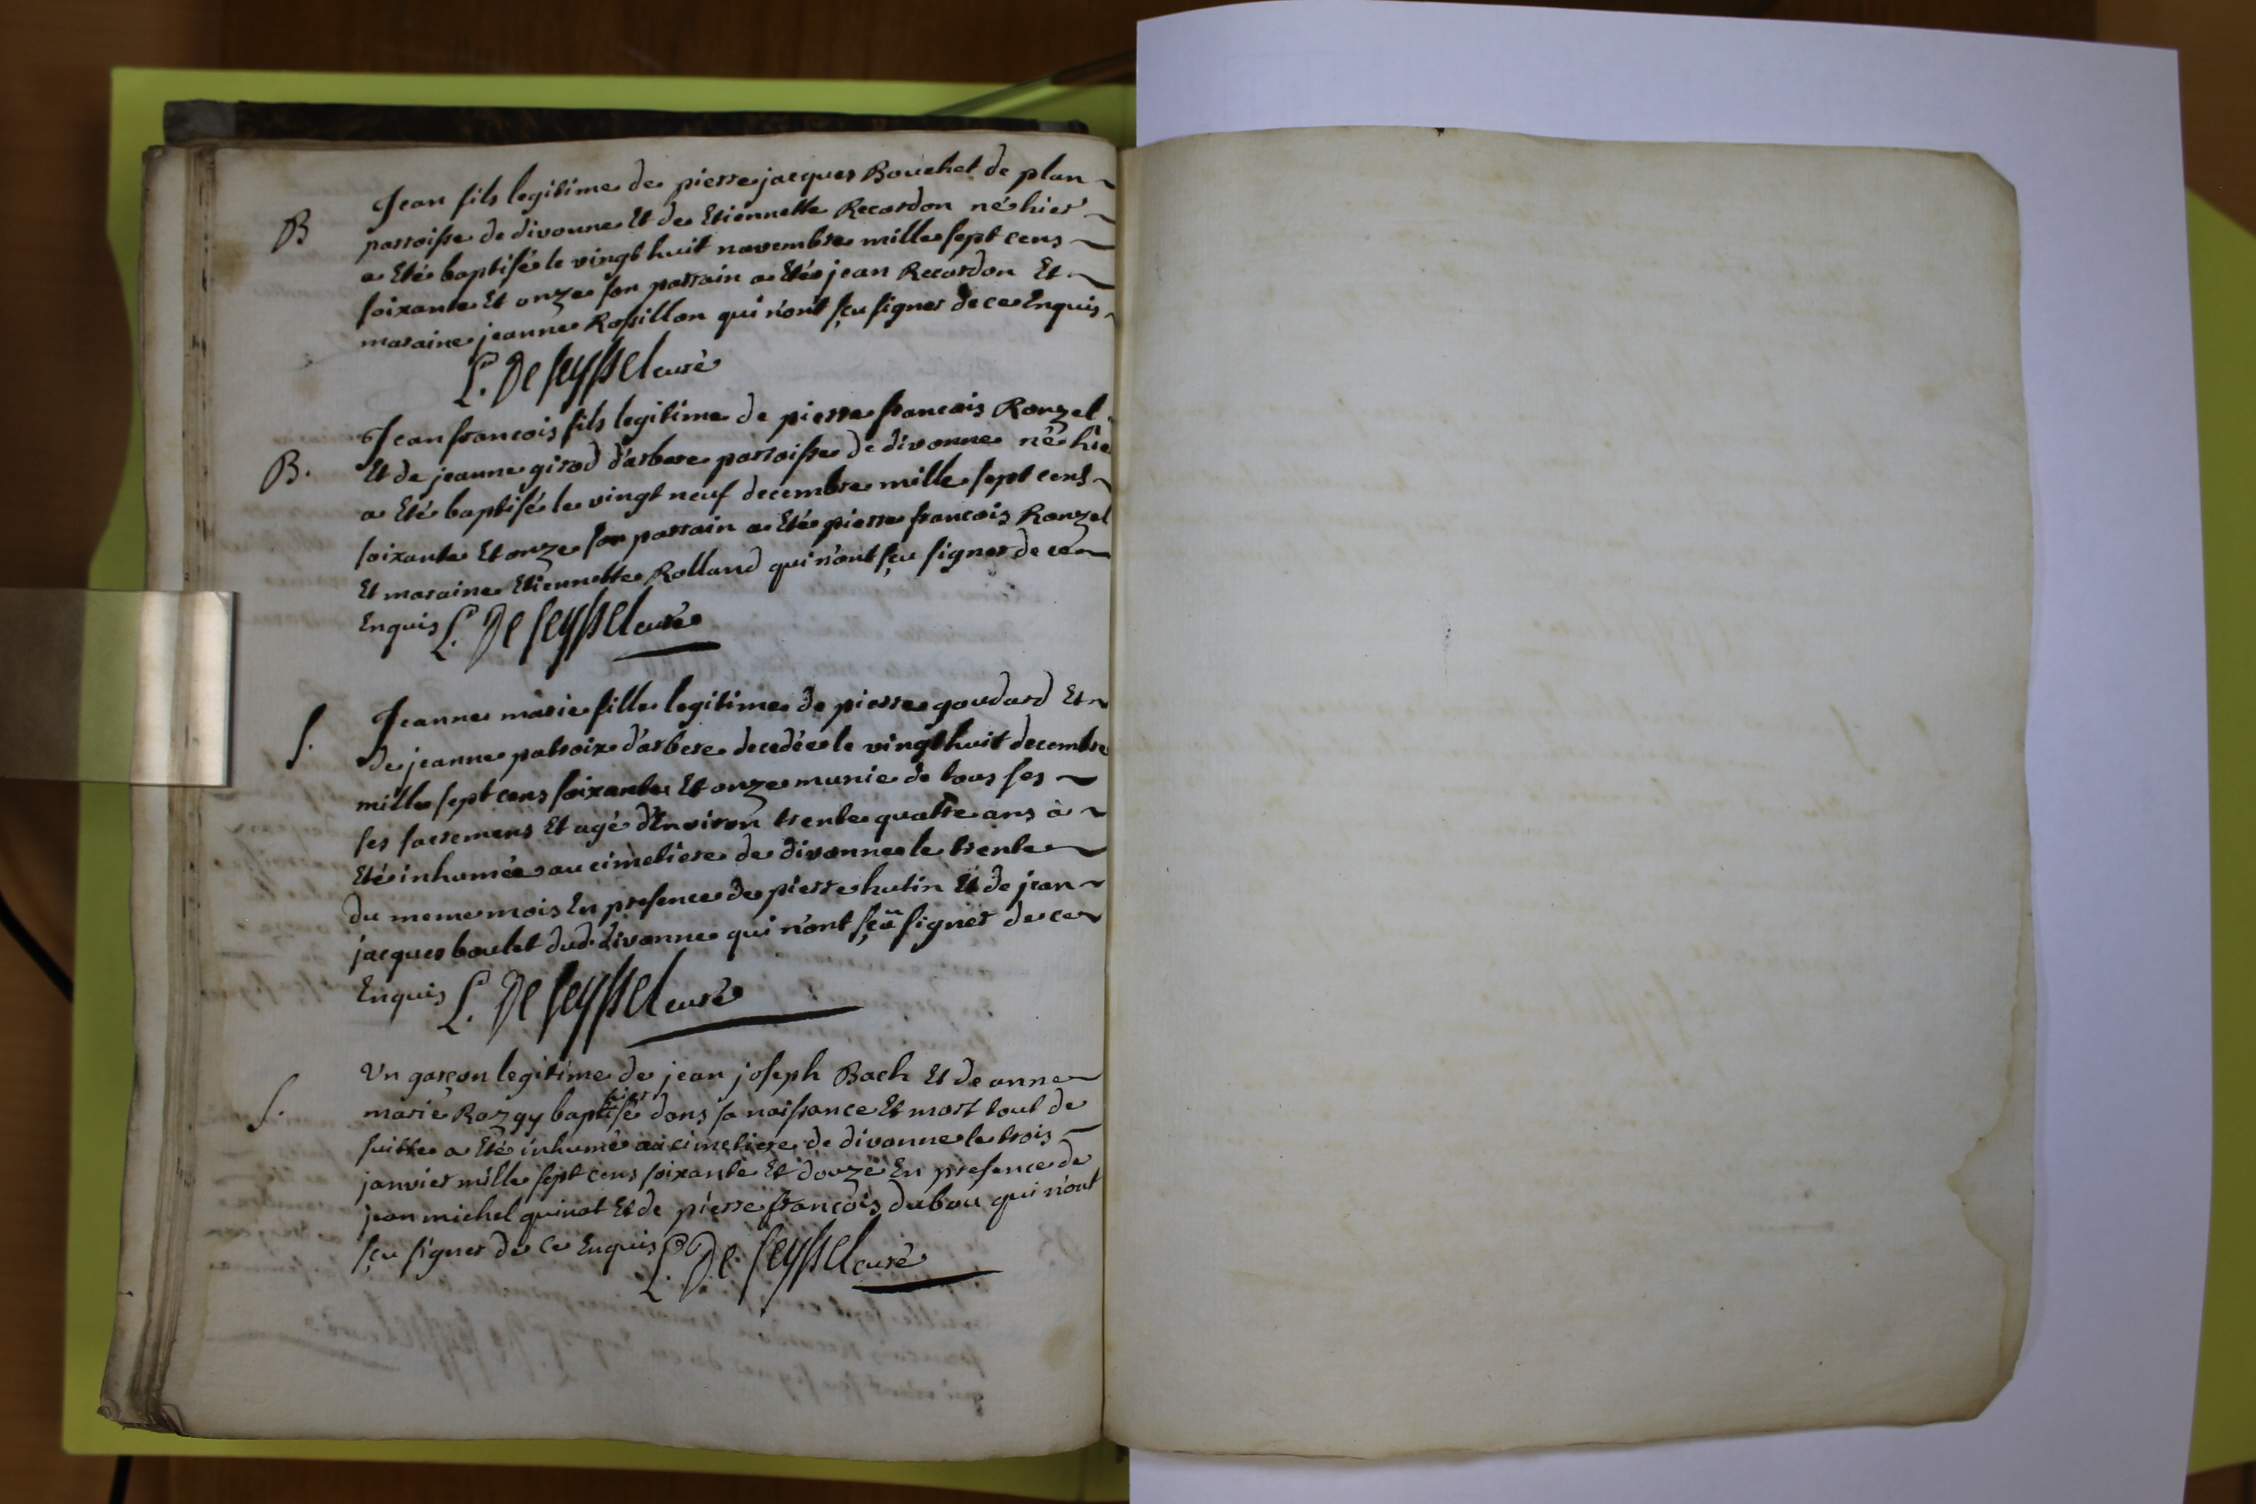 B Jean fils legitime de pierre jacques Bouchet de plan
parroisse de divonne Et de Etiennette Recordon né hier
a Eté baptisé le vingt huit novembre mille sept cens
soixante Et onze son parrain a Eté jean Recordon Et
maraine jeanne Rosillon qui n'ont sçu signer de ce Enquis
L. De seyssel curé
Jean francois fils legitime de pierre francois Ronzel
B. Et de jeanne girod d'arbere parroisse de divonne né hie
a Eté baptisé le vingt neuf decembre mille sept cens
soixante Et onze son parrain a Eté pierre francois Ronzel
Et maraine Etiennette Rolland qui n'ont sçu signer de ce
Enquis L. De seyssel curé
S. Jeanne marie fille legitime de pierre goudard Et
de jeanne patroix d'arbere decedée le vingt huit decembre
mille sept cens soixante Et onze munie de tous ses
ses sacremens Et agé d'Environ trente quatre ans à
Eté inhumée au cimetiere de divonne le trente
du meme mois En presence de pierre hutin Et de jean
jacques boulet dud. divonne qui n'ont sçu signer de ce
Enquis L. De seyssel curé
Un garçon legitime de jean joseph Bach Et de anne
S. marie Razgy baptisé hier dans sa naissance Et mort tout de
suitte a Eté inhumé au cimetiere de divonne le trois
janvier mille sept cens soixante Et douze En presence de
jean michel quinat Et de pierre françois dubou qui n'ont
sçu signer de ce Enquis L. De seyssel curé